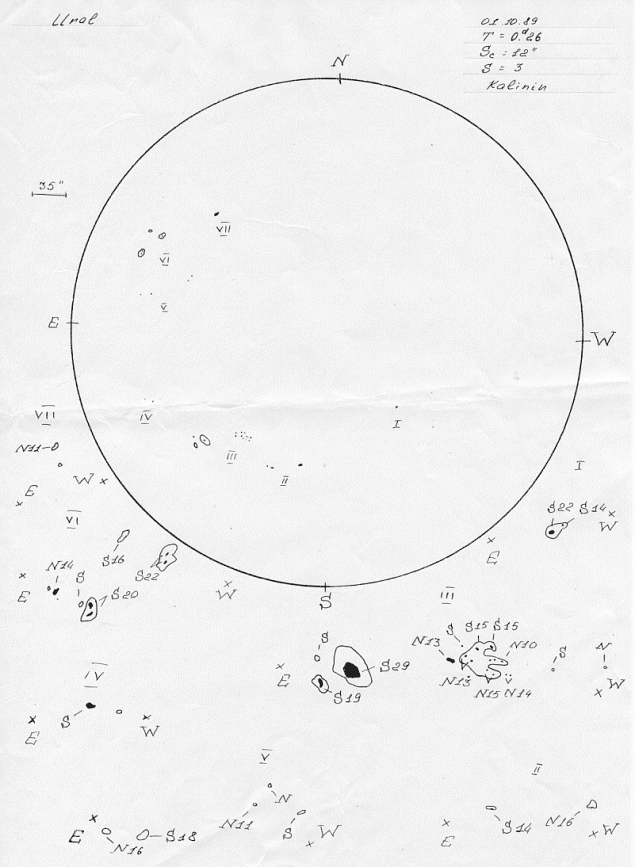 Ural
01.10.89
T = 0.ᵈ26
Sc = 12"
S = 3
Kalinin
N
35"
VII
VI
V
E
W
IV
I
III
II
S
VII
N11
W
E
I
S22 S14
W
E
VI
S16
S22
N14 S
S20
E
W
III
S
S29
S19
E
S S15 S15
N13
N10
N13
N15 N14
S
N
W
IV
S
E
W
V
N
N11
S
W
E
N16
S18
II
E
S14
N16
W